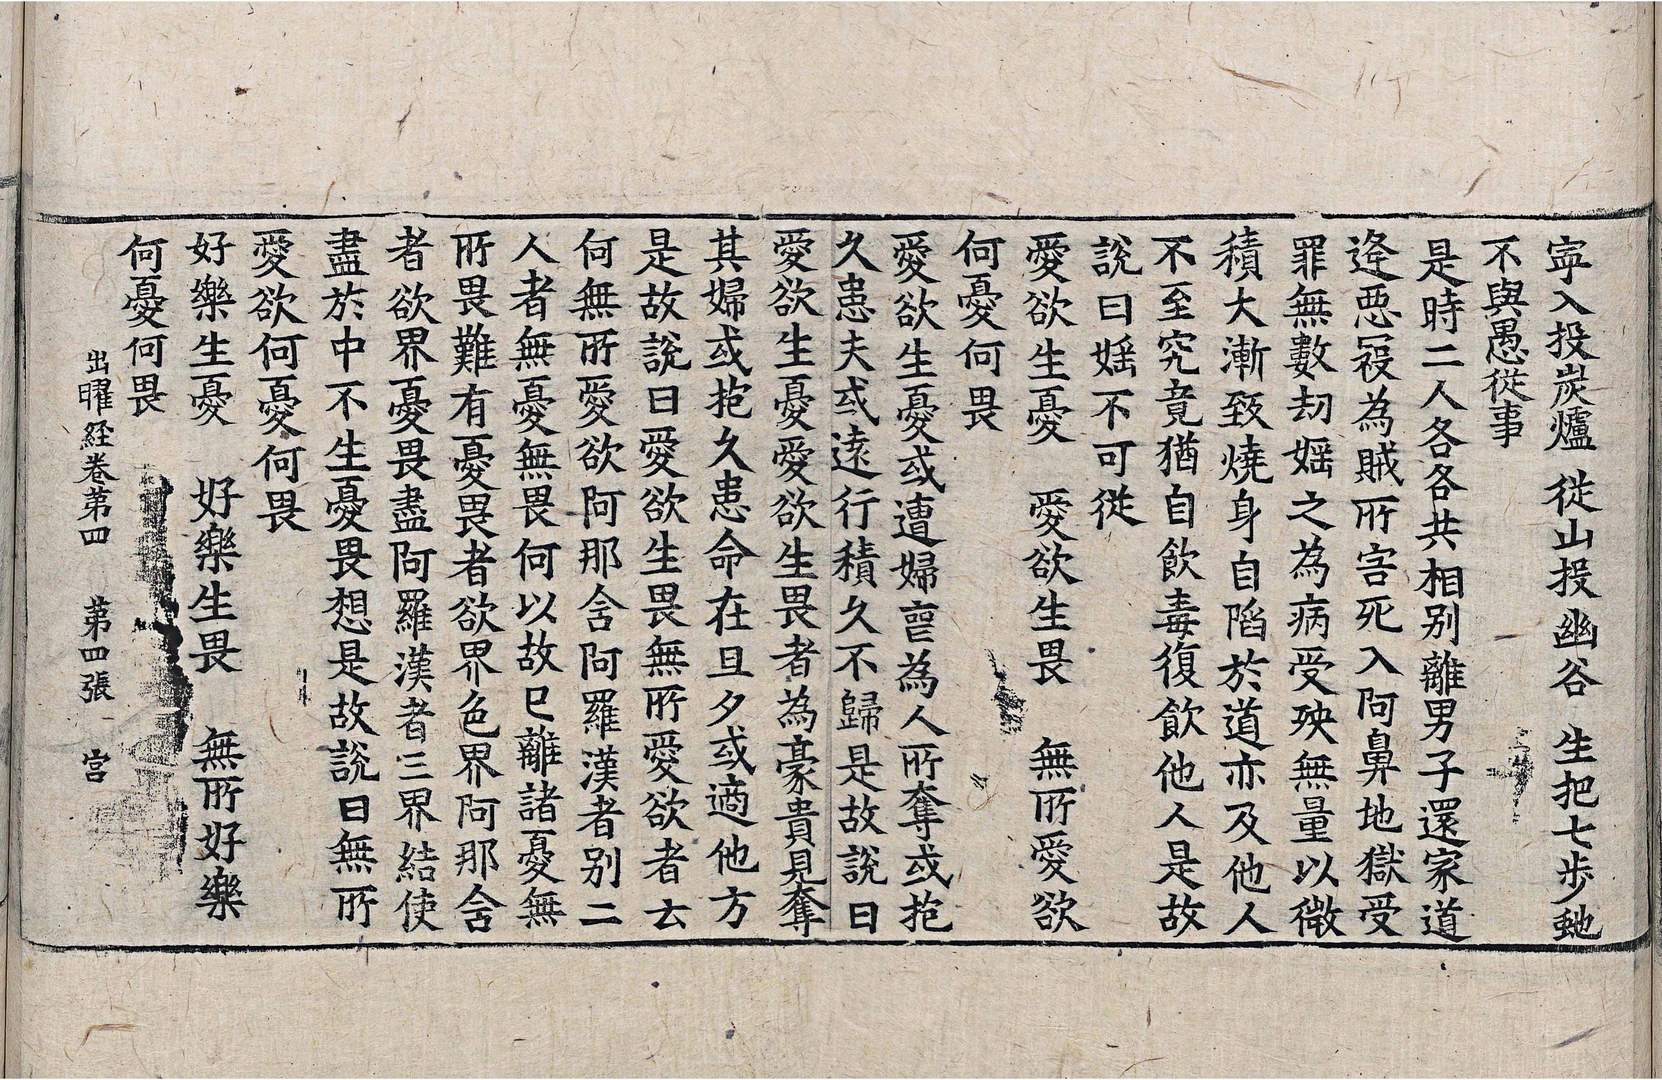 寧入投炭爐　從山投幽谷　生把七步虵
不與愚從事
是時二人各各共相別離男子還家道
逢惡寇為賊所害死入阿鼻地獄受
罪無數劫婬之為病受殃無量以微
積大漸致燒身自陷於道亦及他人
不至究竟猶自飲毒復飲他人是故
說曰婬不可從
愛欲生憂　愛欲生畏　無所愛欲
何憂何畏
愛欲生憂或遭婦喪為人所奪或抱
久患夫或遠行積久不歸是故說曰
愛欲生憂愛欲生畏者為豪貴見奪
其婦或抱久患命在旦夕或適他方
是故說曰愛欲生畏無所愛欲者云
何無所愛欲阿那含阿羅漢者別二
人者無憂無畏何以故已離諸憂無
所畏難有憂畏者欲界色界阿那含
者欲界憂畏盡阿羅漢者三界結使
盡於中不生憂畏想是故說曰無所
愛欲何憂何畏
好樂生憂　好樂生畏　無所好樂
何憂何畏
出曜經卷第四　第四張　宮